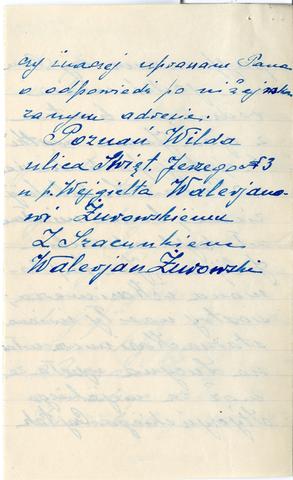 czy inaczej upraszam Pana
o odpowiedź po niżej wska
zanym adresie.
Poznań Wilda
ulica Święt. Jerzego № 3
u p. Wejgielta Walerjano-
wi Żurowskiemu
Z Szacunkiem
Walerjan Żurowski